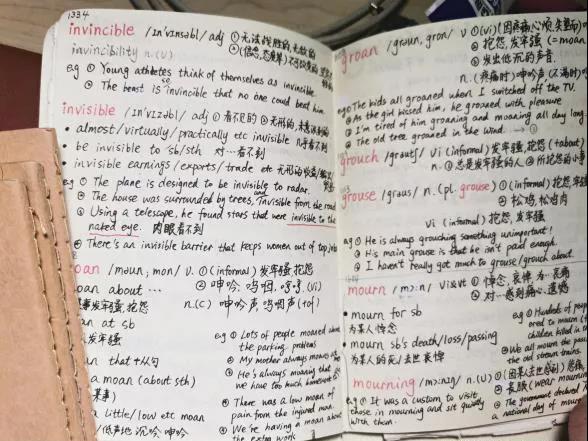 1334
invincible /ɪn'vɪnsəbl/ adj ①无法战胜的,无敌的
invincibility n.(U)
e.g ① Young athletes think of themselves as invincible.
② The beast is so invincible that no one could beat him.
invisible /ɪn'vɪzɪbl/ adj ①看不见的 ②无形的,
• almost/virtually/practically etc invisible 几乎看不到
• be invisible to sb/sth 对…看不到
• invisible earnings/exports/trade etc
eg ① The plane is designed to be invisible to radar.
② The house was surrounded by trees, and invisible from the road
③ Using a telescope, he found stars that were invisible to the
naked eye. 肉眼看不到
④ There's an invisible barrier that keeps women out of top jobs
oan /moun; mon/ v. ①(informal)发牢骚,抱怨
oan about … ②呻吟,呜咽, (vi)
发牢骚,抱怨 n.(c) 呻吟声,呜咽声(+of)
an at sb
发牢骚
an that+从句
a moan (about sth)
a little/low etc moan
低声地 沉吟 呻吟
e.g ① Lots of people moaned about
the parking problems
② My mother always moans
③ He's always moaning that
we have too much homework to
④ There was a low moan of
pain from the injured man.
⑤ We're having a moan about
the extra work
groan /graun, gron/ v ①(vi)
②抱怨,发牢骚 (=moan
③发出低沉的声音.
n.(疼痛时)呻吟声(不满时)
eg ① The kids all groaned when I switched off the TV.
② As the girl kissed him, he groaned with pleasure
③ I'm tired of him groaning and moaning all day long.
④ The old tree groaned in the wind.
grouch /grautʃ/ vi (informal)发牢骚,抱怨 (+about)
n. ①总是发牢骚的人 ②所抱怨的小事
grouse /graus/ n. (pl. grouse) ①(informal)抱怨,
②松鸡,松鸡肉
vi (informal) 抱怨,发牢骚
e.g ① He is always grouching something unimportant!
② His main grouse is that he isn't paid enough.
③ I haven't really got much to grouse/grouch about.
mourn /mɔ:n/ vi&vt ①悼念,哀悼,为…哀痛
②对…感到痛心,遗憾
• mourn for sb
为某人悼念
• mourn sb's death/loss/passing
为某人的死/去世哀悼
e.g ① Hundreds of
to mourn
children killed in
② We all mourn the pass
the old stream trains.
mourning /mɔ:nɪŋ/ n.(U) ①(因某人去世感到)悲痛,
②丧服 (wear mourning
e.g ① It was a custom to visit
those in mourning and sit quietly
with them.
② The government declared
a national day of mourn